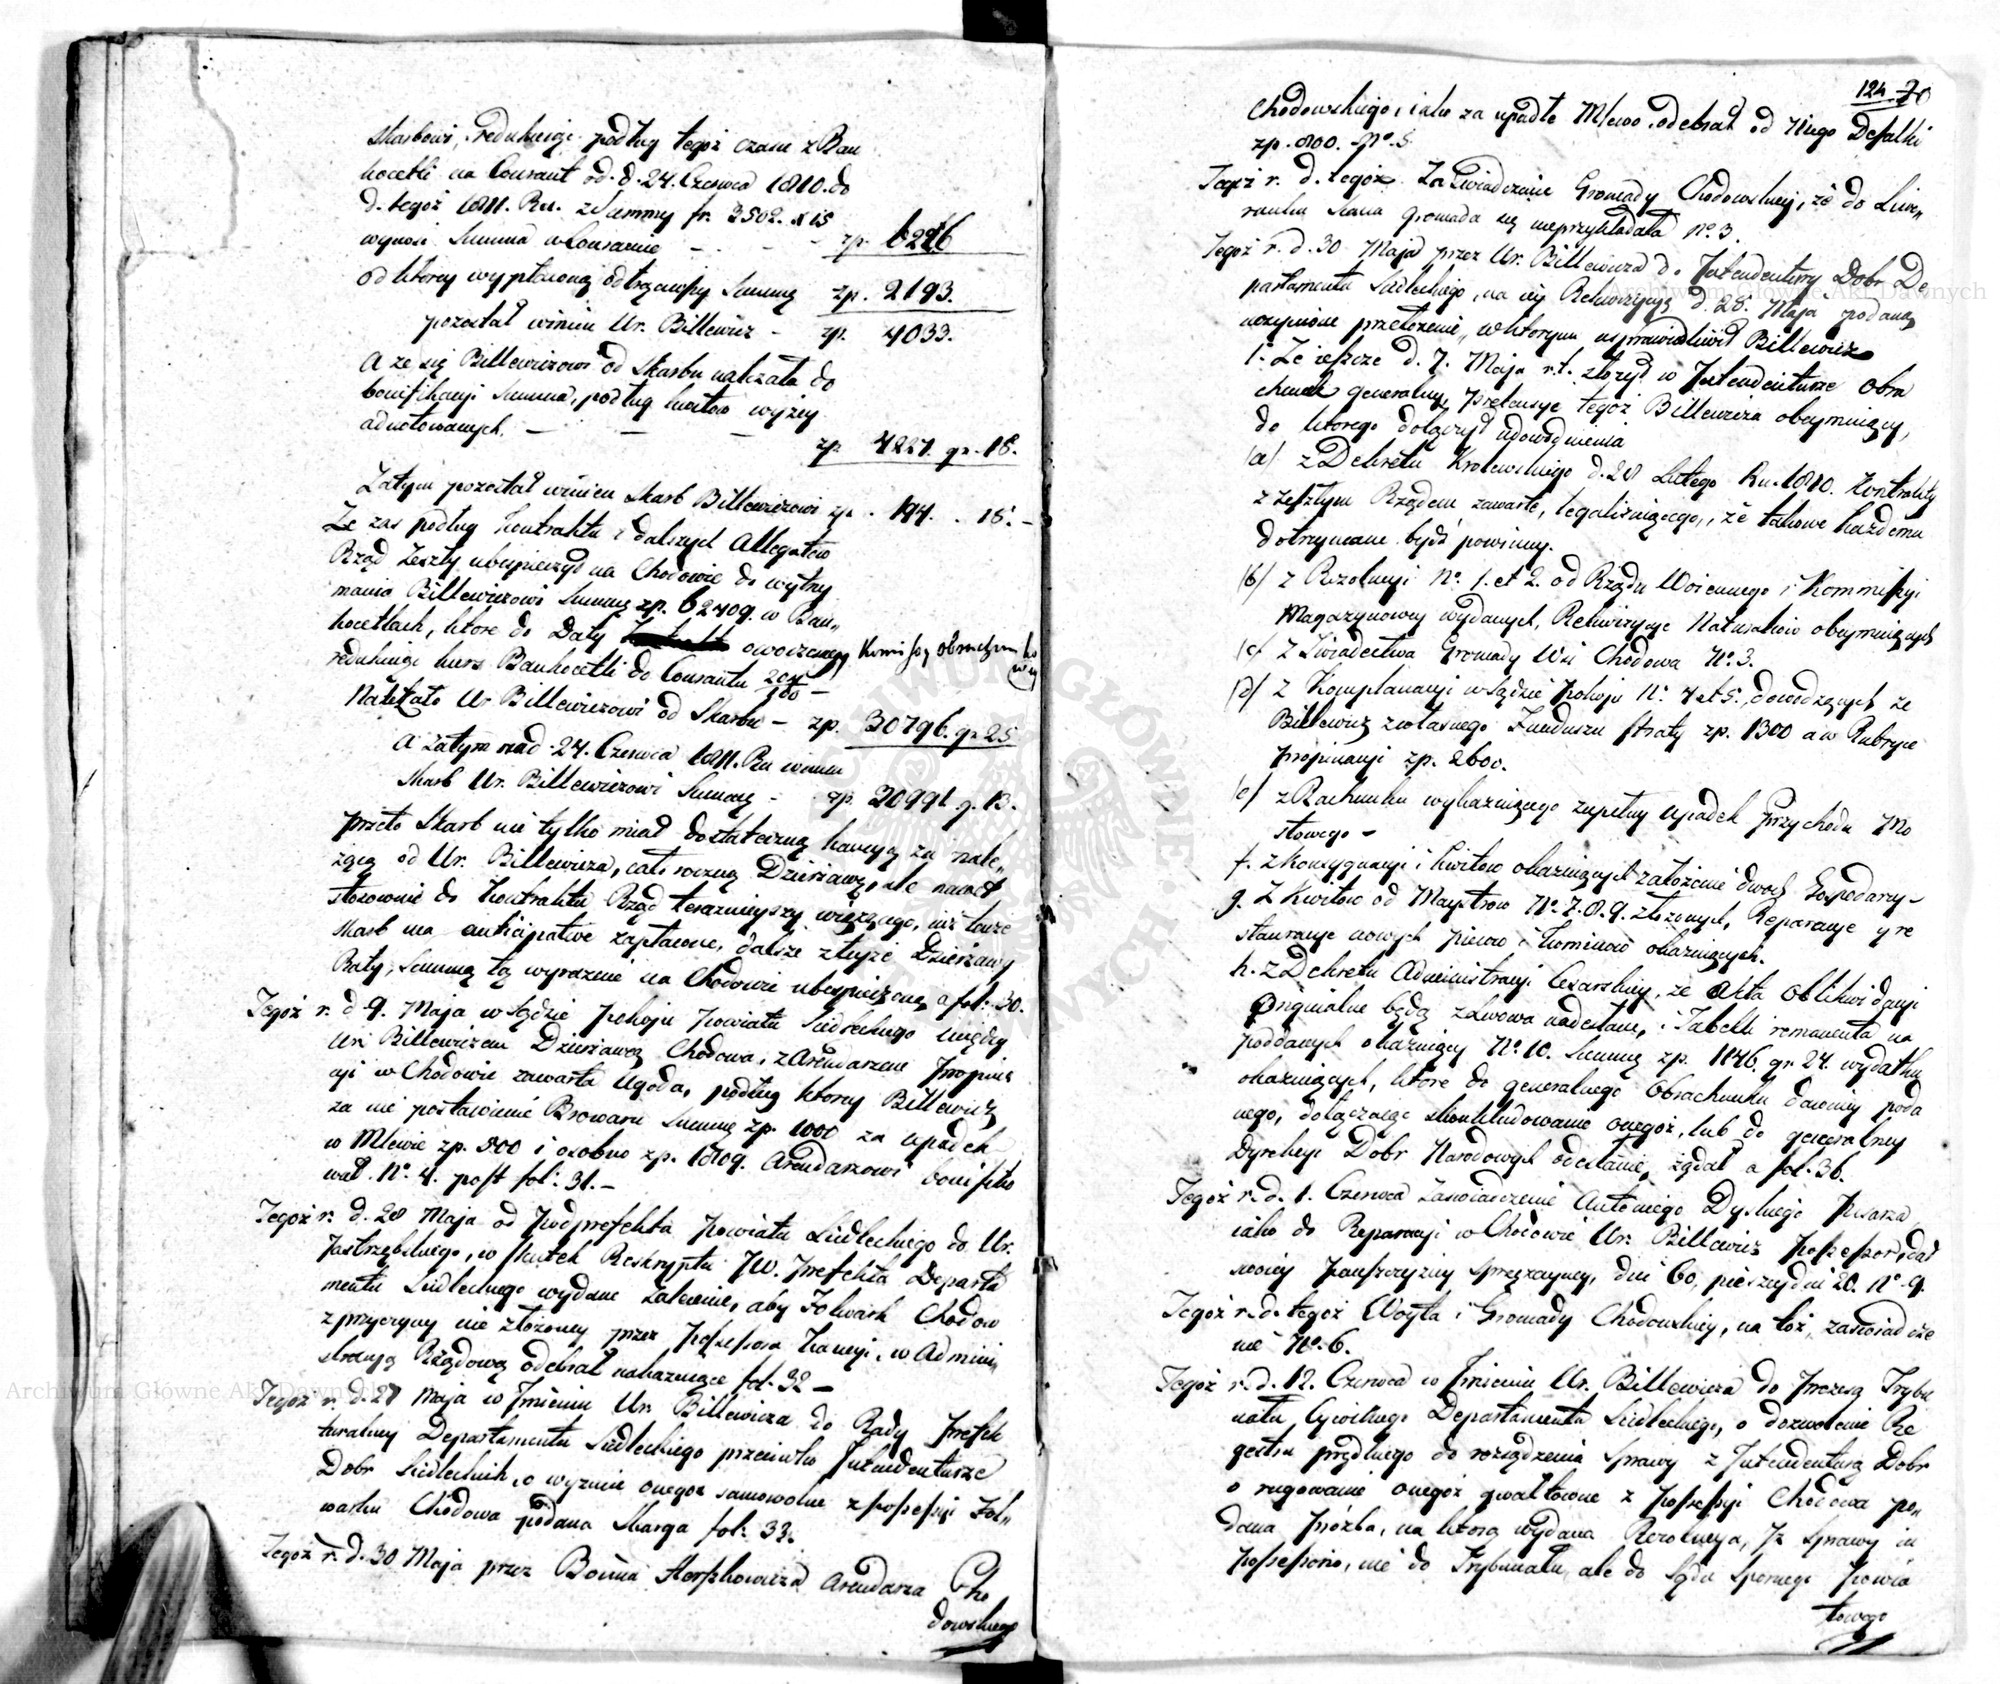 Skarbowi, redukując podług tegoż czasu z Ban
kocetli na Courant od d. 24. Czerwca 1810. do
d. tegoż 1811. Ru. z Summy fr. 3502. x 15
wynosi Summa w Courancie - - - zp. 6226
od ktorey wypłaconą odtrąciwszy Summę zp. 2193.
pozostał winien Ur. Billewicz - zp. 4033.
A że się Billewiczowi od Skarbu należała do
bonifikacyi Summa, podług kwitow wyżey
adnotowanych. — — — zp. 4227. gr. 18.
Zatym pozostał winien Skarb Billewiczowi zp. 194. . 18. -
Że zas podług Kontraktu i dalszych Allegatow
Rząd Zeszły ubespieczył na Chodowie do wytrzy
mania Billewiczowi Summę zp. 62409. w Ban„
kocetlach, ktore do Daty owoczesney Komissyi obrachunko
wey
redukując kurs Bankocetli do Courantu
Należało Ur Billewiczowi od Skarbu - zp. 30796. gr 25
A zatym nad 24. Czerwca 1811. Ru winien
Skarb Ur. Billewiczowi Summę - zp. 20991 g. 13.
przeto Skarb nie tylko miał dostateczną kaucyą za nale„
żącą od Ur. Billewicza, całoroczną Dzierżawę, ale nawet
stosownie do Kontraktu Rząd teraznieyszy wiążącego, niż
Skarb ma anticipative zapłacone, dalsze Dzierżawy
Raty, Summę tę wyraznie na Chodowie ubespieczoną a fol: 30.
Tegoż r. d 9. Maja w Sądzie Pokoju Powiatu Siedleckiego między
Ur. Billewiczem Dzierżawcą Chodowa, z Arendarzem Propina
cyi w Chodowie zawarta Ugoda, podług ktorey Billewicz
za nie postawienie Browaru Summę zp. 1000 za upadek
w Mlewie zp. 800 i osobno zp. 1809. Arendarzowi bonifiko
wał. No. 4. post fol: 31. -
Tegoż r. d. 28 Maja od Podprefekta Powiatu Siedleckiego do Ur.
Jastrzębskiego, w skutek Reskryptu JW. Prefekta Departa
mentu Siedleckiego wydane zalecenie, aby Folwark Chodow
z przyczyny nie złożoney przez Possessora Kaucyi, w Admini
stracyą Rządową odebrał nakazujące fol. 32 -
Tegoż r. d. 28 Maja w Imieniu Ur. Billewicza do Rady Prefek
turalney Departamentu Siedleckiego przeciwko Intendenturze
Dobr Siedleckich, o wyzucie onegoz samowolne z possessyi Fol„
warku Chodowa podana Skarga fol: 33.
Tegoż r. d. 30 Maja przez Arendarza Cho
dowskiego
124. 70
Chodowskiego, iako za upadłe Mlewo odebrał od Niego Defalki
zp. 800. No. 5.
Tegoż r. d. tegoż. Zaswiadczenie Gromady Chodowskiey, że do Liwe„
runku siana gromada się nieprzykładała No. 3.
Tegoż r. d. 30 Maja przez Ur. Billewicza do Intendentury Dobr De
partamentu Siedleckiego, na iey Rekwizycyą d. 28. Maja podaną
uczynione przełożenie, w ktorym usprawiedliwił Billewicz
1o. Że ieszcze d. 7. Maja r.t. złożył w Intendenturze obra
chunek generalny, pretensye tegoż Billewicza obeymuiący,
do ktorego dołączył udowodnienia
(a) z Dekretu Krolewskiego d. 28 Lutego Ru. 1810. Kontrakty
z zeszłym Rządem zawarte, legalizuiącego, że takowe każdemu
dotrzymane bydź powinny.
(b) z Rezolucyi No. 1. et 2. od Rządu Woiennego i Kommissyi
Magazynowey wydanych, Rekwizycye Naturaliow obeymuiących
(c) Z Swiadectwa Gromady Wsi Chodowa No. 3.
(d) z Komplanacyi w Sądzie Pokoju No. 4 et 5. dowodzących że
Billewicz z własnego Funduszu straty zp. 1300 a w Rubryce
Propinacyi zp. 2600.
(e) z Rachunku wykazuiącego zupełny upadek Przychodu Mo
stowego -
f. z Konsygnacyi i kwitow okazuiących założenie dwoch Gospodarzy -
g. Z Kwitow od Maystrow No. 7. 8. 9. złożonych, Reparacye y re
stauracye nowych piecow i Kominow okazuiących.
h. z Dekretu Administracyi Cesarskiey, że Akta Oblikwidacyi
Originalne będą z Lwowa nadesłane, i Tabelli remanenta na
poddanych okazuiącey No. 10. Summę zp. 1846. gr 24. wydatku
okazuiących, ktore do generalnego Obrachunku dawniey poda
nego, dołączaiąc skonkludowanie onegoż, lub do generalney
Dyrekcyi Dobr Narodowych odesłanie, żądał a fol. 36.
Tegoż r. d. 1. Czerwca zaswiadczenie Antoniego Dyskiego Pisarza
iako do Reparacyi w Chodowie Ur. Billewicz Possessor, dał
swoiey Pańszczyzny sprzężayney, dni 60, pieszey dni 20. No. 9.
Tegoż r. d. tegoż Woyta i Gromady Chodowskiey, na toż, zaswiadcze
nie No. 6.
Tegoż r. d. 12. Czerwca w Imieniu Ur. Billewicza do Prezesa Trybu
nału Cywilnego Departamentu Siedleckiego, o dozwolenie Re
gestru prędkiego do rozsądzenia Sprawy z Intendenturą Dobr
o rugowanie onegoż gwałtowne z Possessyi Chodowa po„
dana Prożba, na ktorą wydana Rezolucya, Iż Sprawy in
Possessorio, nie do Trybunału, ale do Sądu Spornego Powia
towego
Archiwum Główne Akt Dawnych
Archiwum Główne Akt Dawnych